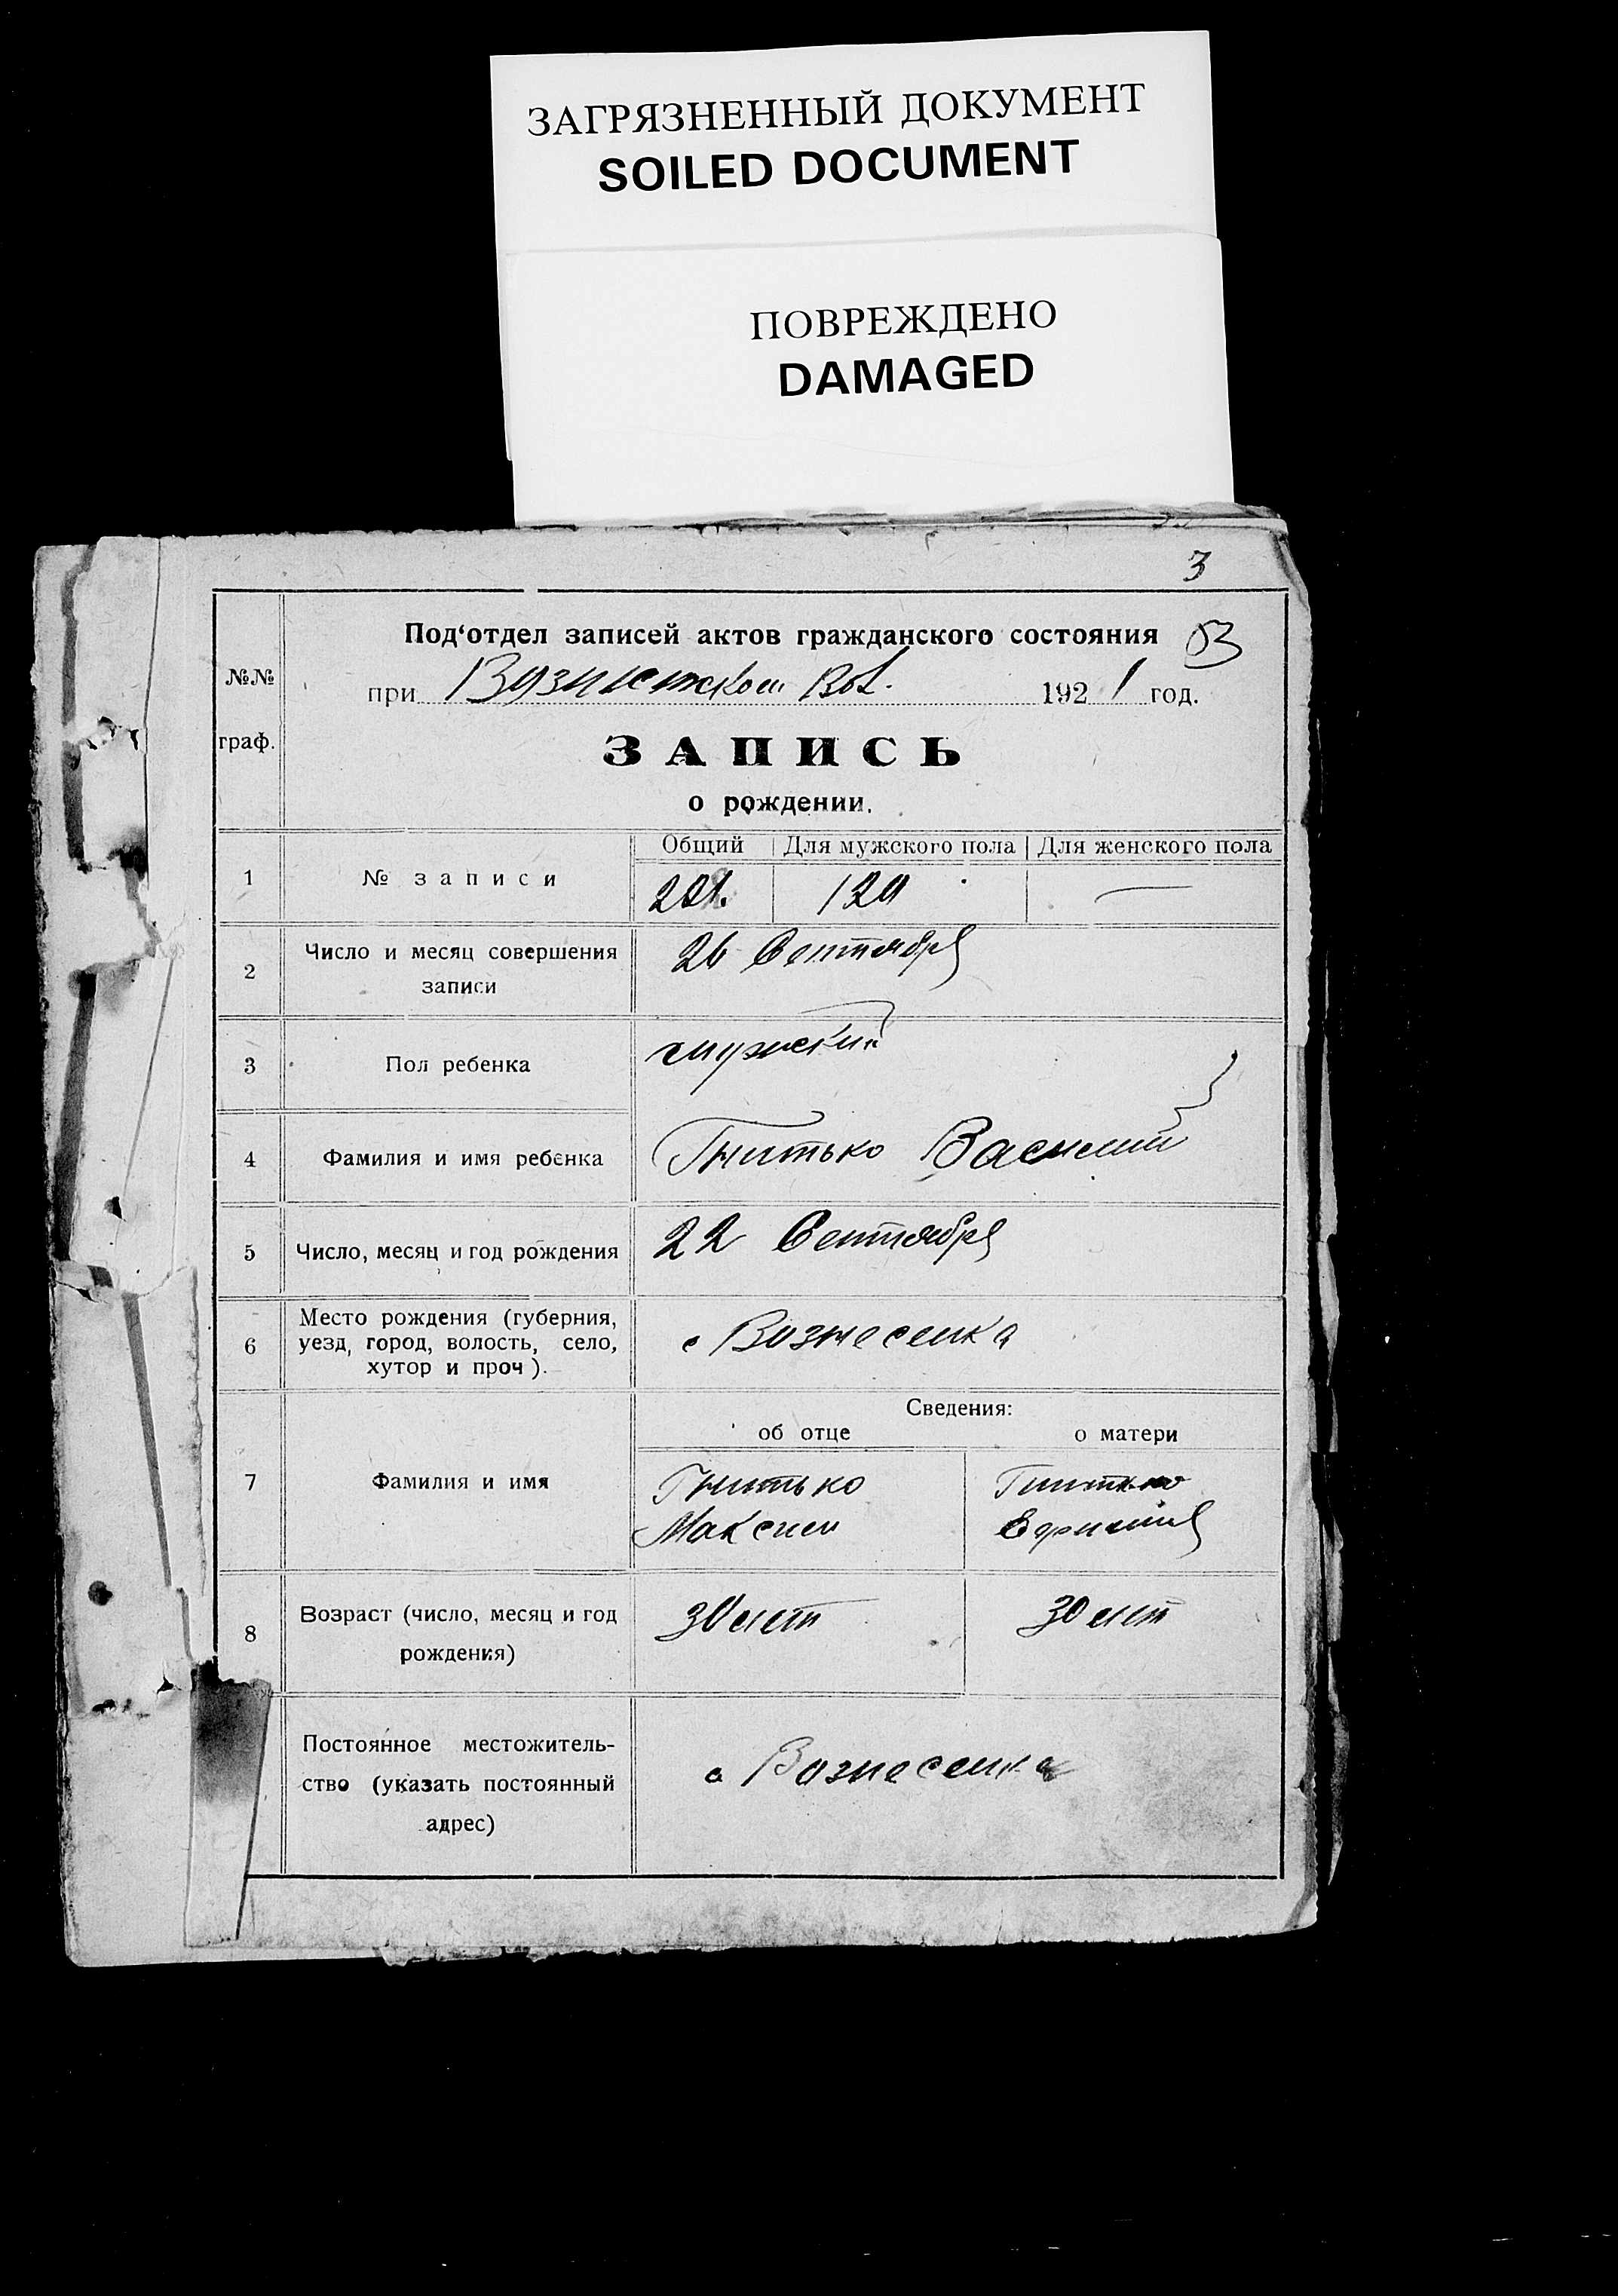 ЗАГРЯЗНЕННЫЙ ДОКУМЕНТ
SOILED DOCUMENT
ПОВРЕЖДЕНО
DAMAGED
3
Под‘отдел записей актов гражданского состояния
53
№№
при Вол. 1921 год.
граф.
ЗАПИСЬ
о рождении.
Общий Для мужского пола Для женского пола
1 № записи 120 —
2 Число и месяц совершения
записи
26 Сентября
3 Пол ребенка мужский
4 Фамилия и имя ребенка Гнитько Василий
5 Число, месяц и год рождения 22 Сентября
6 Место рождения (губерния,
уезд, город, волость, село,
хутор и проч).
с Вознесенка
Сведения:
об отце о матери
7 Фамилия и имя
Гнитько Гнитько
Максим
8 Возраст (число, месяц и год
рождения)
30 лет 30 лет
Постоянное местожитель-
ство (указать постоянный
адрес)
с Вознесенка